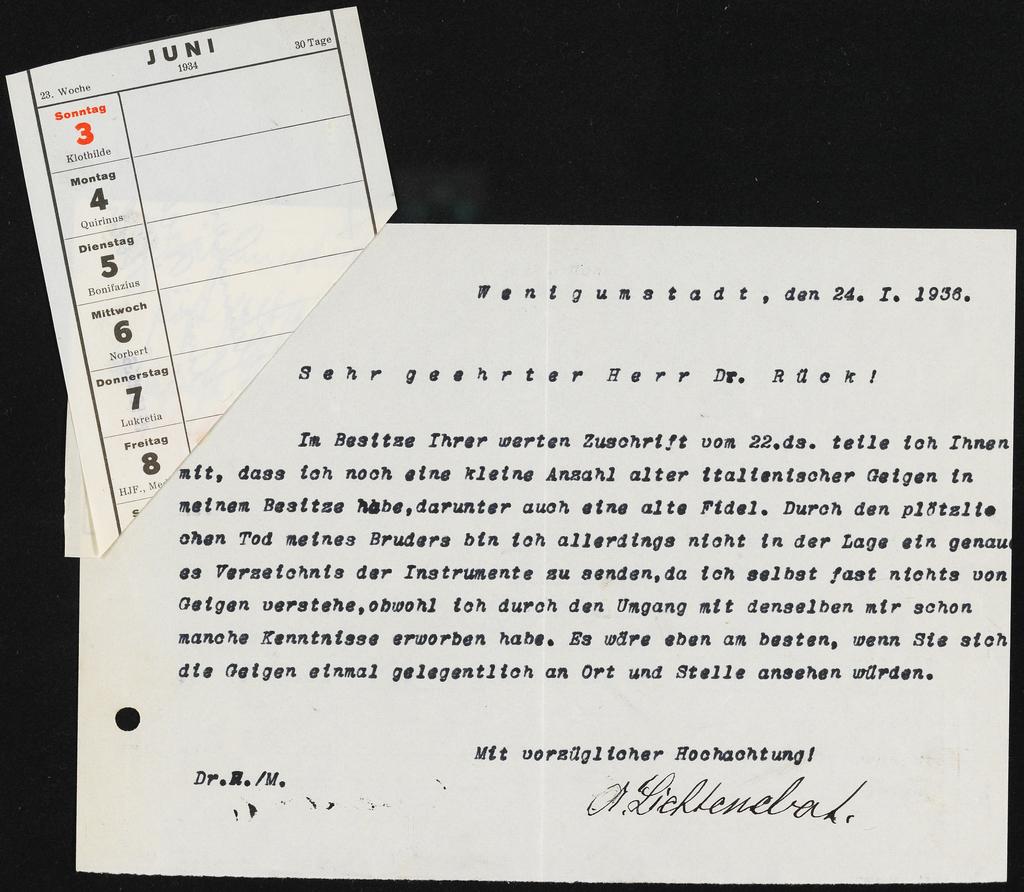 JUNI
1934
30 Tage
23. Woche
Sonntag
3
Klothilde
Montag
4
Quirinus
Dienstag
5
Bonifazius
Mittwoch
6
Norbert
Donnerstag
7
Lukretia
Freitag
8
HJF., Me
Wenigumstadt, den 24. I. 1936.
Sehr geehrter Herr Dr. Rück!
Im Besitze Ihrer werten Zuschrift vom 22.ds. teile ich Ihnen
mit, dass ich noch eine kleine Anzahl alter italienischer Geigen in
meinem Besitze habe,darunter auch eine alte Fidel. Durch den plötzlie
chen Tod meines Bruders bin ich allerdings nicht in der Lage ein genau
es Verzeichnis der Instrumente zu senden,da ich selbst fast nichts von
Geigen verstehe,obwohl ich durch den Umgang mit denselben mir schon
manche Kenntnisse erworben habe. Es wäre eben am besten, wenn Sie sich
die Geigen einmal gelegentlich an Ort und Stelle ansehen würden.
Mit vorzüglicher Hochachtung!
Dr.R./M.